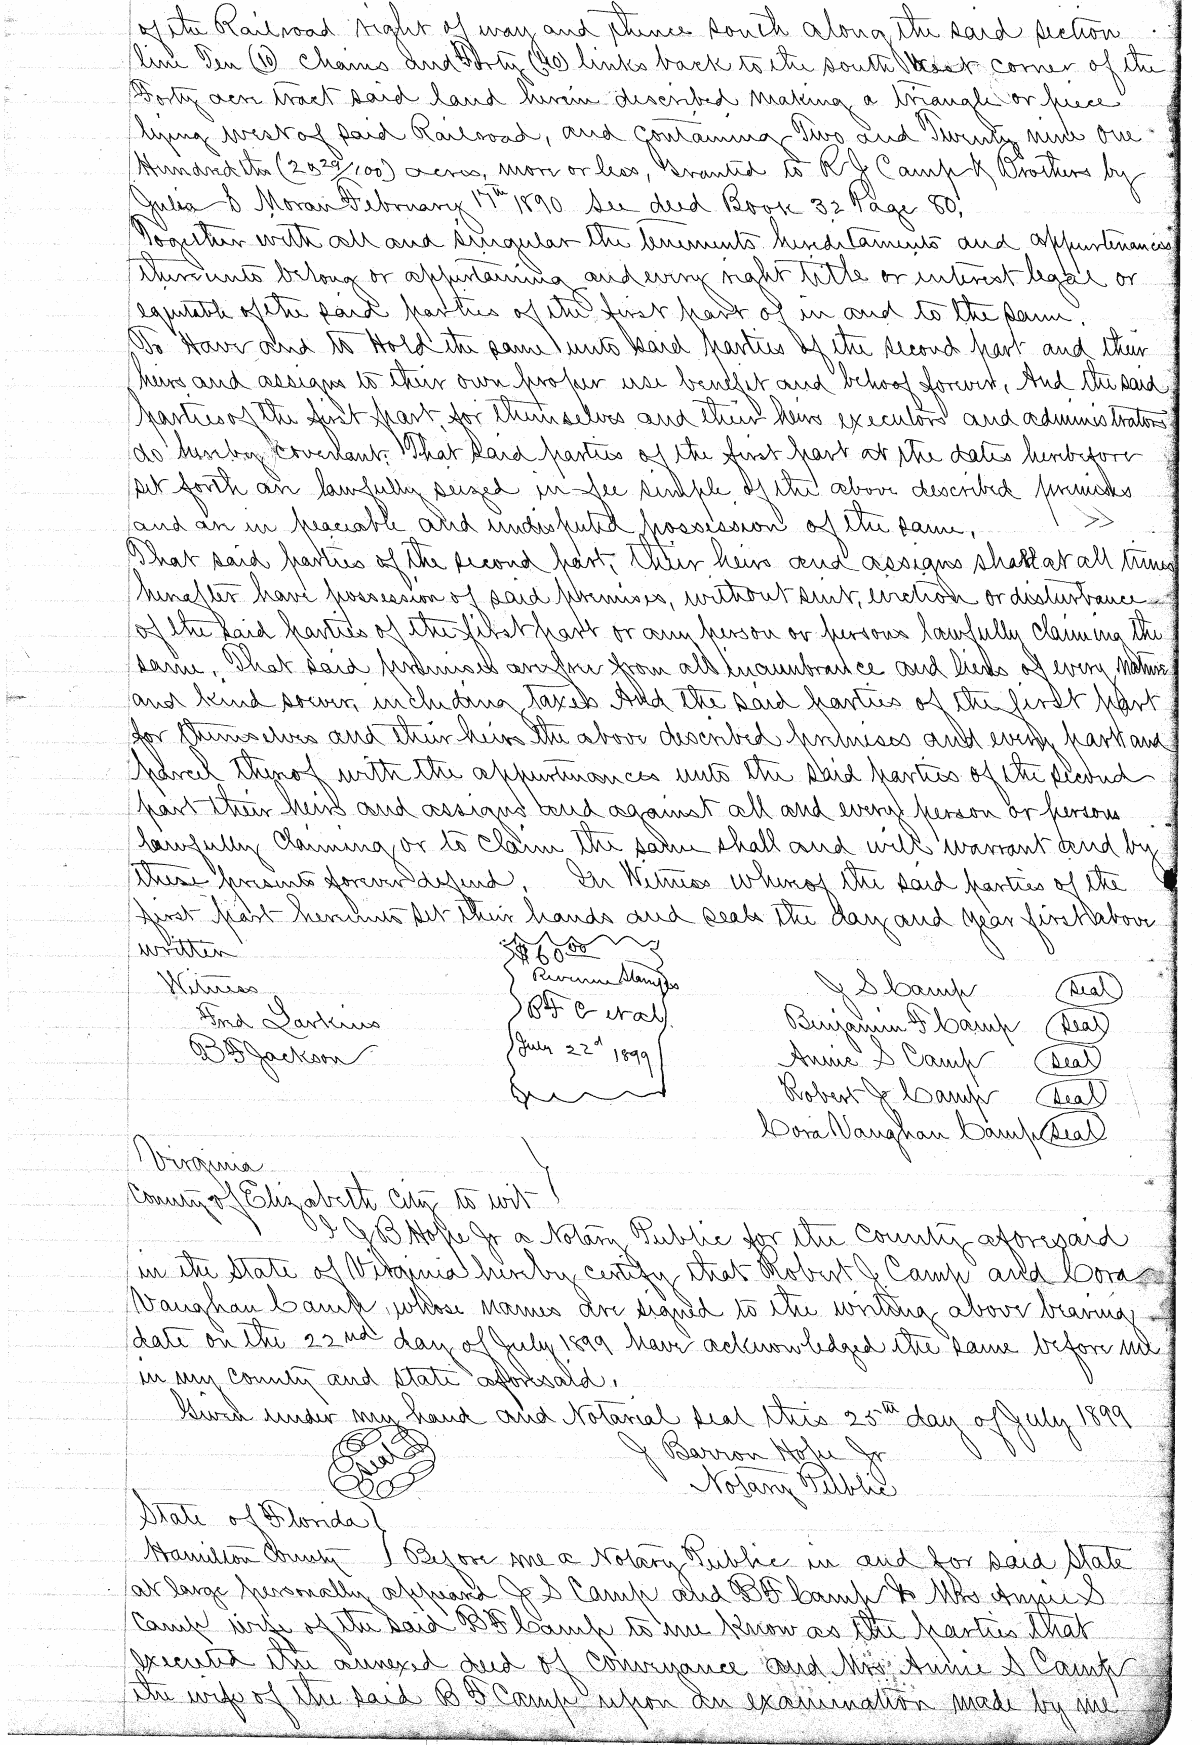 of the Railroad right of way and thence south along the said section
line Ten (10) Chains and Forty (40) links back to the south West corner of the
Forty acre tract said land herein described making a triangle or piece
lying west of said Railroad, and Containing Two and Twenty nine One
Hundredths (2 & 29/100) acres, more or less, granted to R J Camp & Brothers by
Julia D Moran February 17th 1890 See deed Book 32 Page 80.
Together with all and singular the tenements hereditaments and appurtenances
thereunto belong or appertaining and every right title or interest legal or
equitable of the said parties of the first part of in and to the same.
To Have and to Hold the same unto said parties of the second part and their
heirs and assigns to their own proper use benefit and behoof forever, And the said
parties of the first part, for themselves and their heirs executors and administrators
do hereby covenant. That said parties of the first part at the dates herebefore
set forth are lawfully seized in fee simple of the above described premises
and are in peaceable and undisputed possession of the same.
That said parties of the second part, their heirs and assigns shall at all times
hereafter have possession of said premises, without suit, eviction or disturbance
of the said parties of the first part or any person or persons lawfully claiming the
same. That said premises are free from all incumbrance and liens of every nature
and kind soever, including taxes And the said parties of the first part
for themselves and their heirs the above described premises and every part and
parcel thereof with the appurtenances unto the said parties of the second
part their heirs and assigns and against all and every person or persons
lawfully claiming or to claim the same shall and will warrant and by
these presents forever defend. In Witness whereof the said parties of the
first part hereunto set their hands and seals the day and year first above
written
$60.00
Revenue Stamps
B F C et al
July 22d 1899
Witness
Fred Larkins
B F Jackson
J S Camp Seal
Benjamin F Camp Seal
Annie S Camp Seal
Robert J Camp Seal
Cora Vaughan Camp Seal
Virginia
County of Elizabeth City to wit
I J B Hope Jr a Notary Public for the County aforesaid
in the State of Virginia hereby certify that Robert J Camp and Cora
Vaughan Camp, whose names are signed to the writing above bearing
date on the 22nd day of July 1899 have acknowledged the same before me
in my county and state aforesaid.
Given under my hand and Notarial seal this 25th day of July 1899
Seal
J Barron Hope Jr
Notary Public
State of Florida
Hamilton County Before me a Notary Public in and for said State
at large personally appeard J S Camp and B F Camp & Mrs Annie S
Camp wife of the said B F Camp to me know as the parties that
executed the annexed deed of conveyance and Mrs Annie S Camp
the wife of the said B F Camp upon an examination made by me